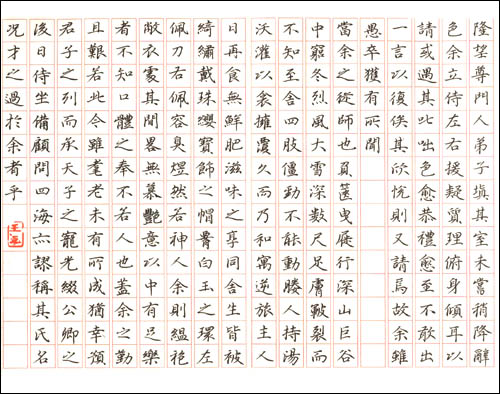 隆望尊門人弟子填其室未嘗稍降辭
色余立侍左右援疑質理俯身傾耳以
請或遇其叱咄色愈恭禮愈至不敢出
一言以復俟其欣悅則又請焉故余雖
愚卒獲有所聞
當余之從師也負篋曳屣行深山巨谷
中窮冬烈風大雪深數尺足膚皸裂而
不知至舍四股僵勁不能動媵人持湯
沃灌以衾擁覆久而乃和寓逆旅主人
日再食無鮮肥滋味之享同舍生皆被
綺繡戴珠纓寶飾之帽腰白玉之環左
佩刀右佩容臭煜然若神人余則縕袍
敝衣處其間略無慕艷意以中有足樂
者不知口體之奉不若人也蓋余之勤
且艱若此今雖耄老未有所成猶幸預
君子之列而承天子之寵光綴公卿之
後日侍坐備顧問四海亦謬稱其氏名
況才之過於余者乎